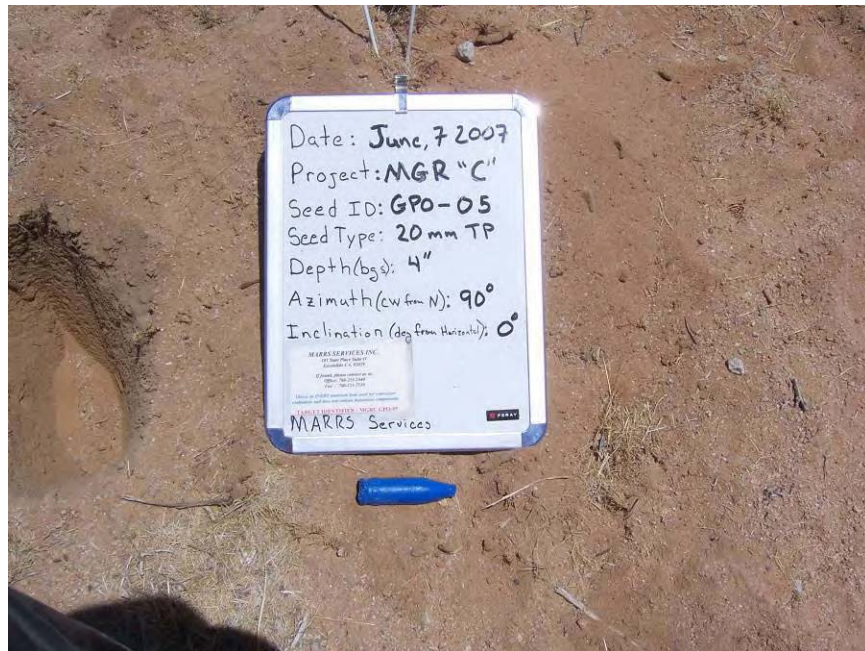 Date: June, 7 2007
Project: MGR "C"
Seed ID: GPO-05
Seed Type: 20mm TP
Depth (bgs): 4"
Azimuth (cw from N): 90°
Inclination (deg from Horizontal): 0°
MARRS SERVICES INC.
If found, please contact us at:
MARRS Services
FORAY